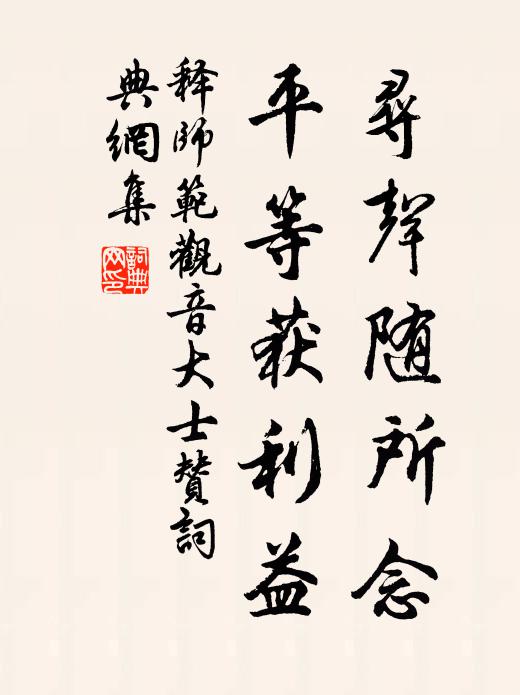 尋聲随所念
平等获利益
释師範觀音大士贊詞
典網集
詞典
网印